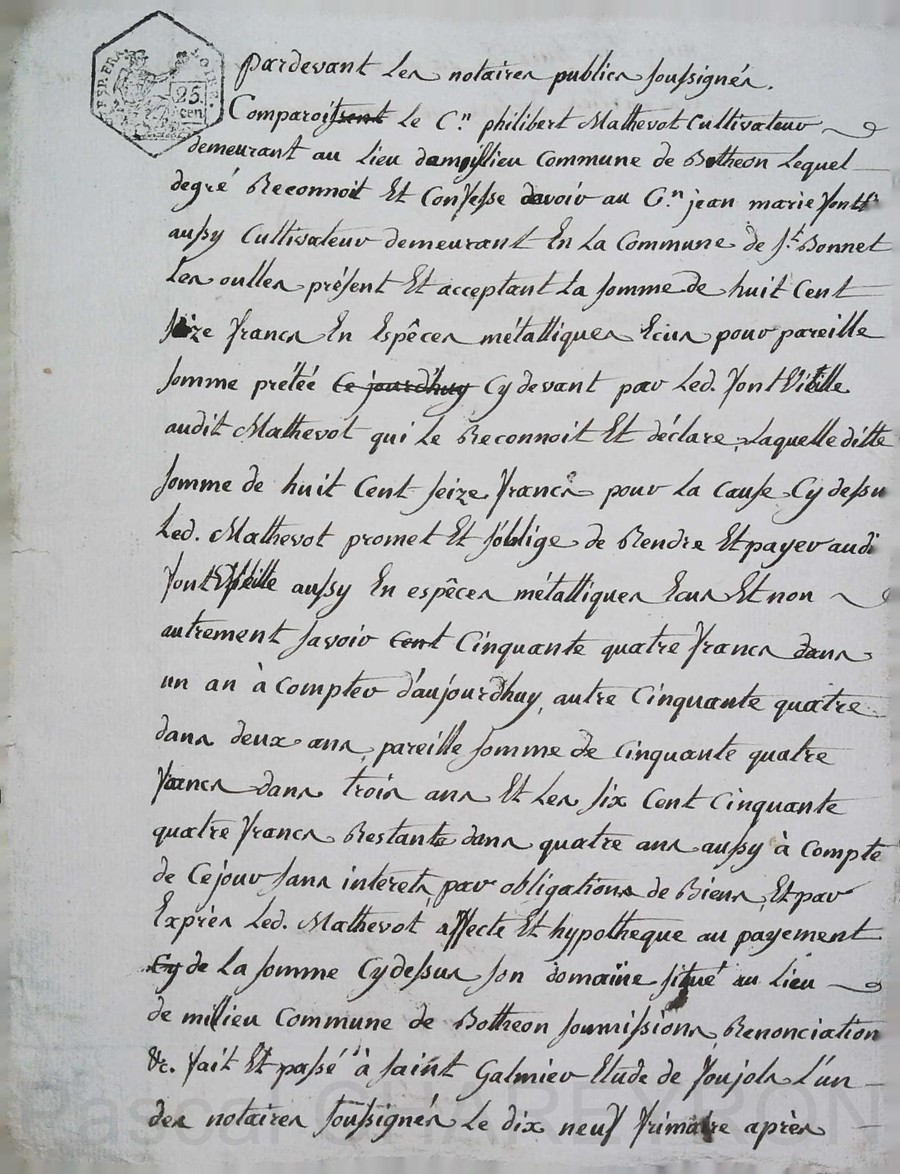 RÉP. FRA.
LOIRE.
25.
cen
pardevant Les notaires publics soussignés.
Comparoissent Le C.en philibert Mathevot Cultivateur
demeurant au Lieu de milieu Commune de Botheon Lequel
degré Reconnoit Et Confesse devoir au C.en jean marie font
aussy Cultivateur demeurant En La Commune de S.t Bonnet
Les oulles présent Et acceptant La somme de huit Cent
seize francs En Espêces métalliques Ecus pour pareille
somme prétée Ce jourdhuy Cy devant par Led. fontVieille
audit Mathevot qui Le Reconnoit Et déclare, Laquelle ditte
somme de huit Cent seize francs pour La cause Cy dessu
Led. Mathevot promet Et s'oblige de Rendre Et payer audi
fontVieille aussy En espêces métalliques Ecus Et non
autrement savoir Cent Cinquante quatre francs dans
un an à Compter d'aujourdhuy, autre Cinquante quatre
dans deux ans, pareille somme de Cinquante quatre
francs dans trois ans Et Les six Cent Cinquante
quatre francs Restants dans quatre ans aussy à Compte
de Cejour sans interets, par obligations de Biens, Et par
Exprès Led. Mathevot affecte Et hypotheque au payement
Cy de La somme Cy dessus son domaine situé au Lieu
de milieu Commune de Botheon soumissions, Renonciation
&c. fait Et passé à saint Galmier Etude de foujols L'un
des notaires soussignés Le dix neuf frimaire après
Pascal © MAREYRON